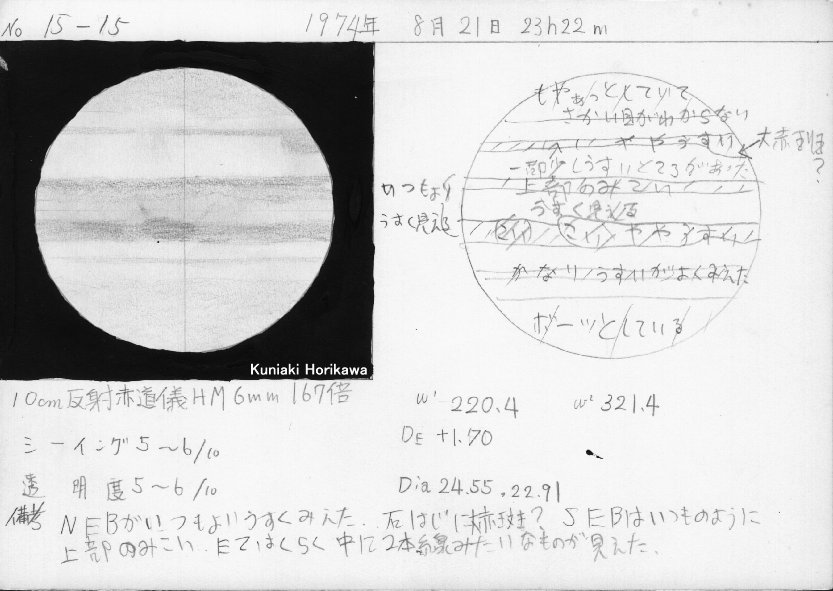 No 15-15 1974年 8月 21日 23h22m
もやぁっとしていて
さかい目がわからない
ややうすい
大赤斑
?
一部少しうすいところがあった
上部のみこい
いつもより
うすく見える
うすく見える
こい こい ややうすい
かなりうすいがよくみえた
ボーッとしている
Kuniaki Horikawa
10cm反射赤道儀HM6mm 167倍
ω¹ 220.4 ω² 321.4
シーイング5〜6/10
DE +1.70
透明度5〜6/10
Dia 24.55, 22.91
備考 NEBがいつもよりうすくみえた. 右はじに大赤斑? SEBはいつものように
上部のみこい. EZはくらく中に2本線みたいなものが見えた.